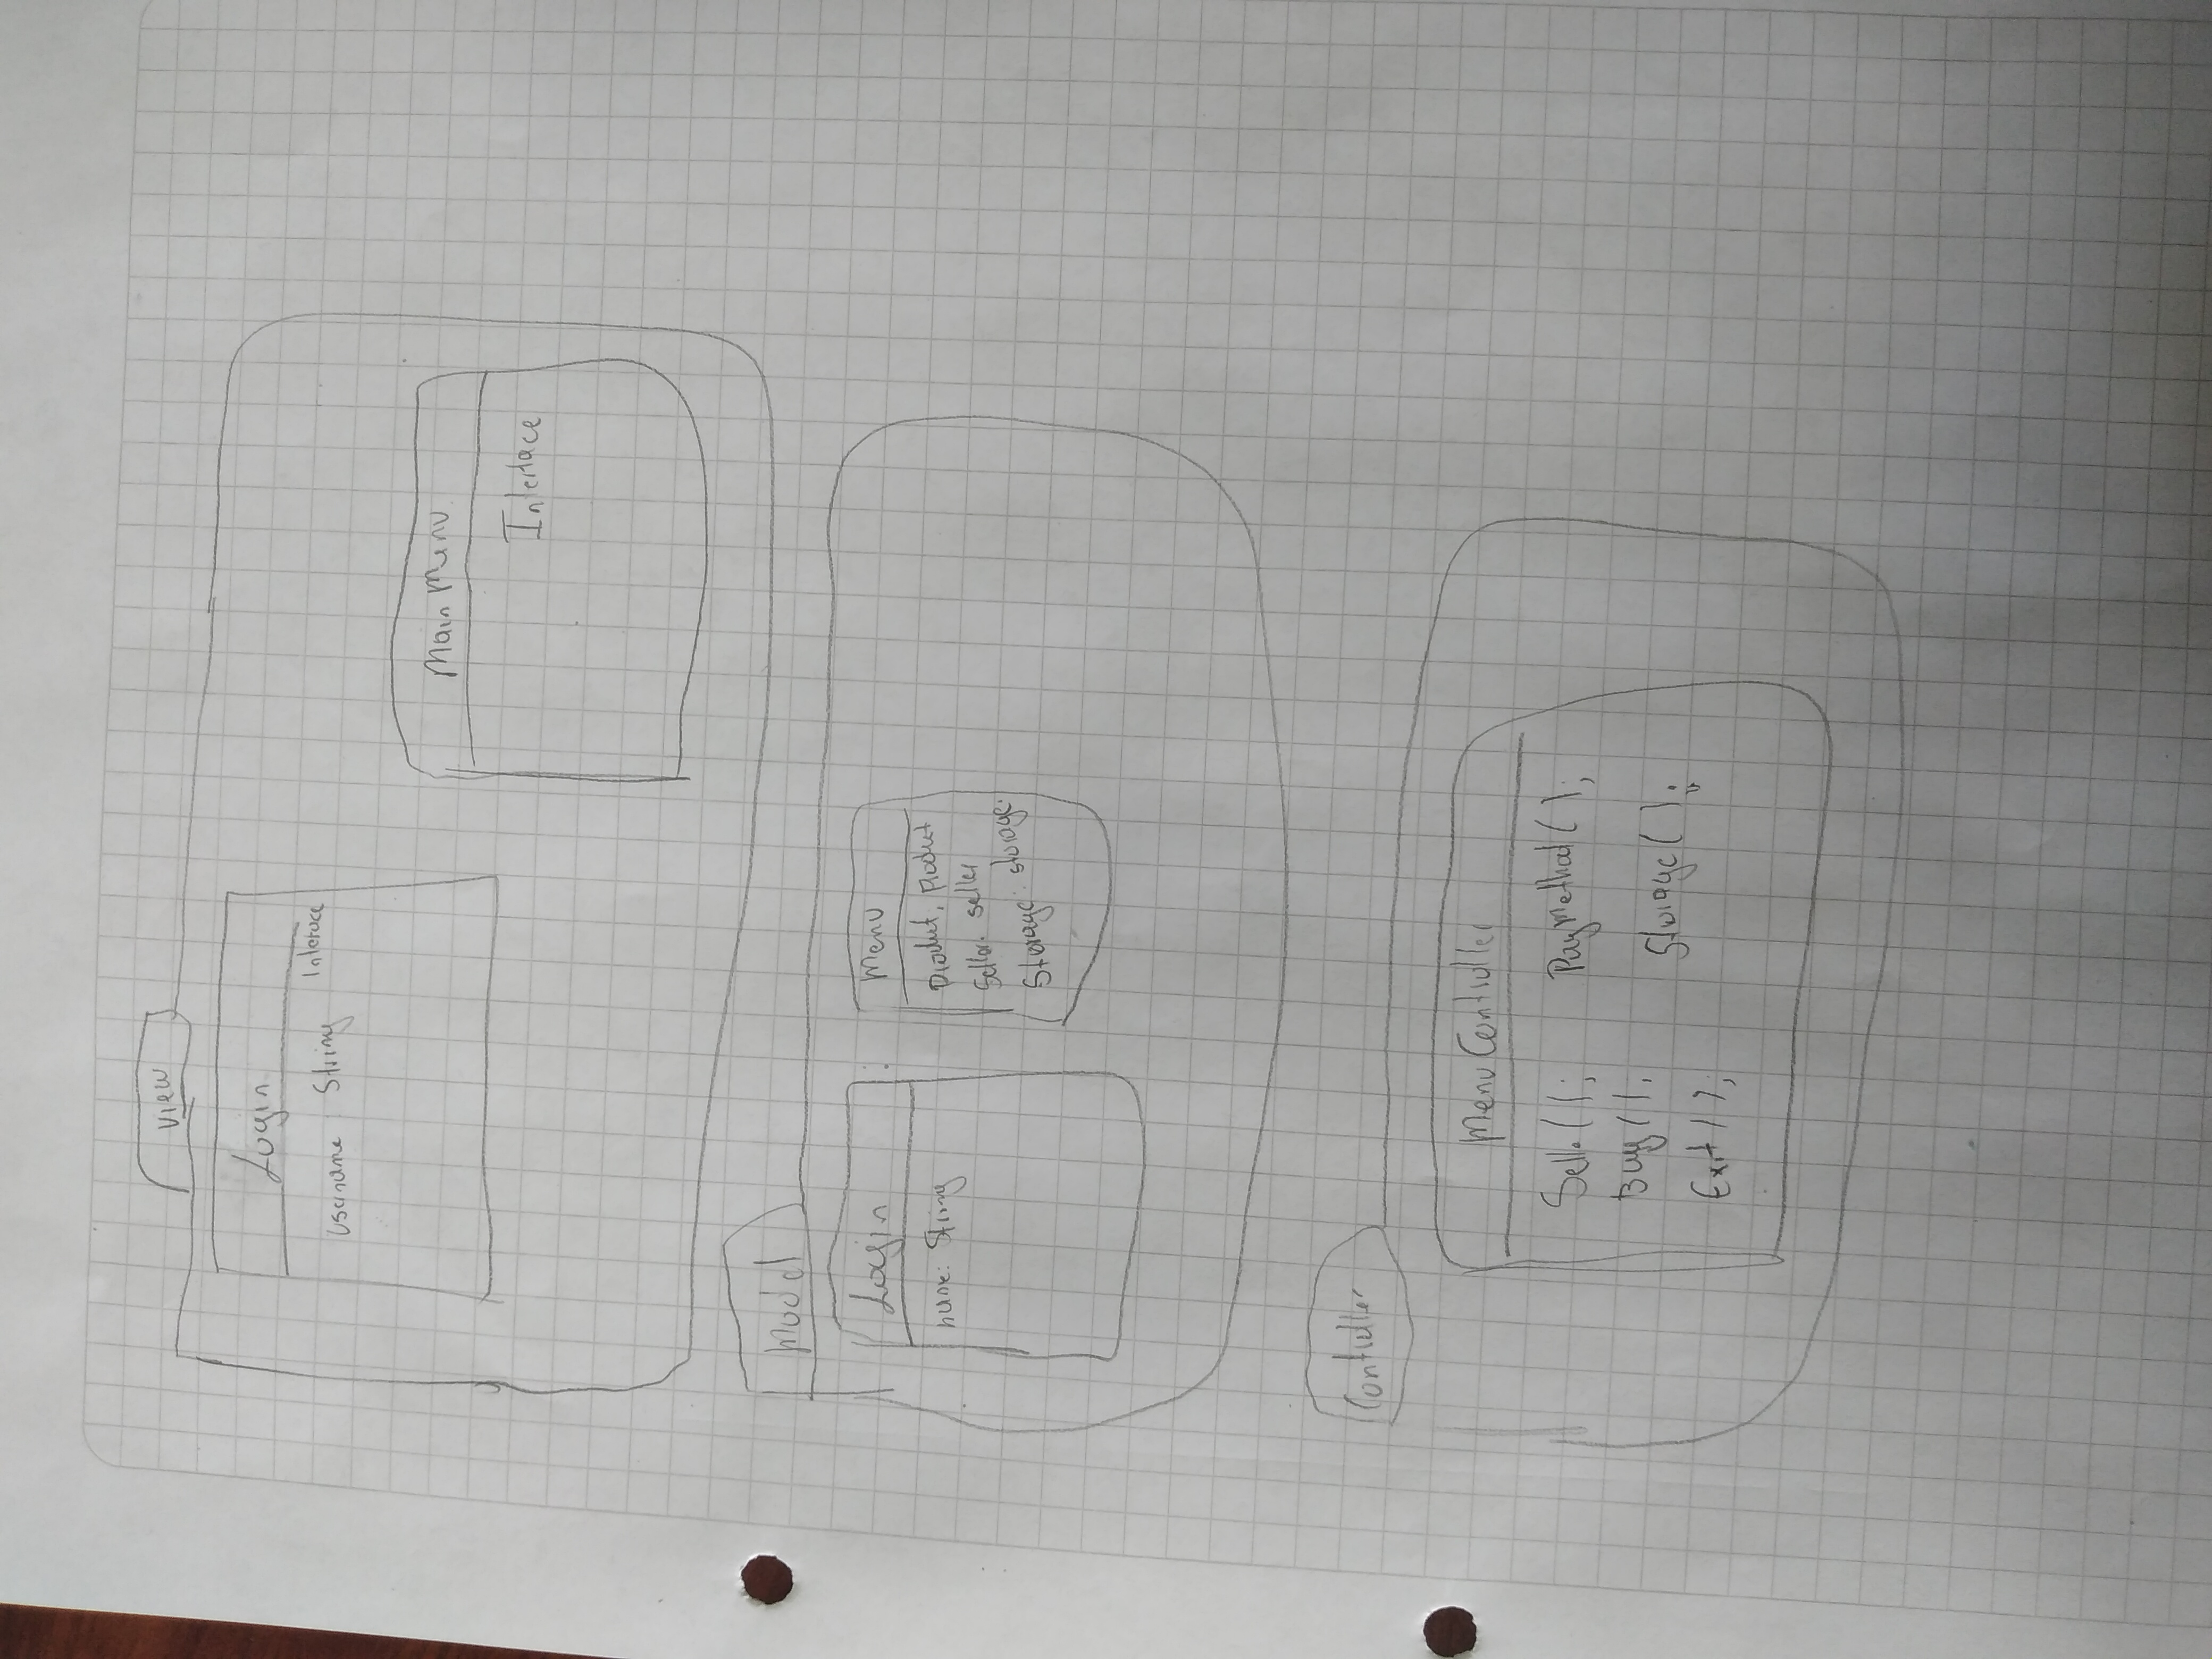 View
Login
Username: String Interface
Main Menu
Interface
Model
Login
name: String
Menu
Product, product
Seller: seller
Storage: storage:
Controller
MenuController
Sell(); PayMethod();
Buy(); Storage();
Exit();